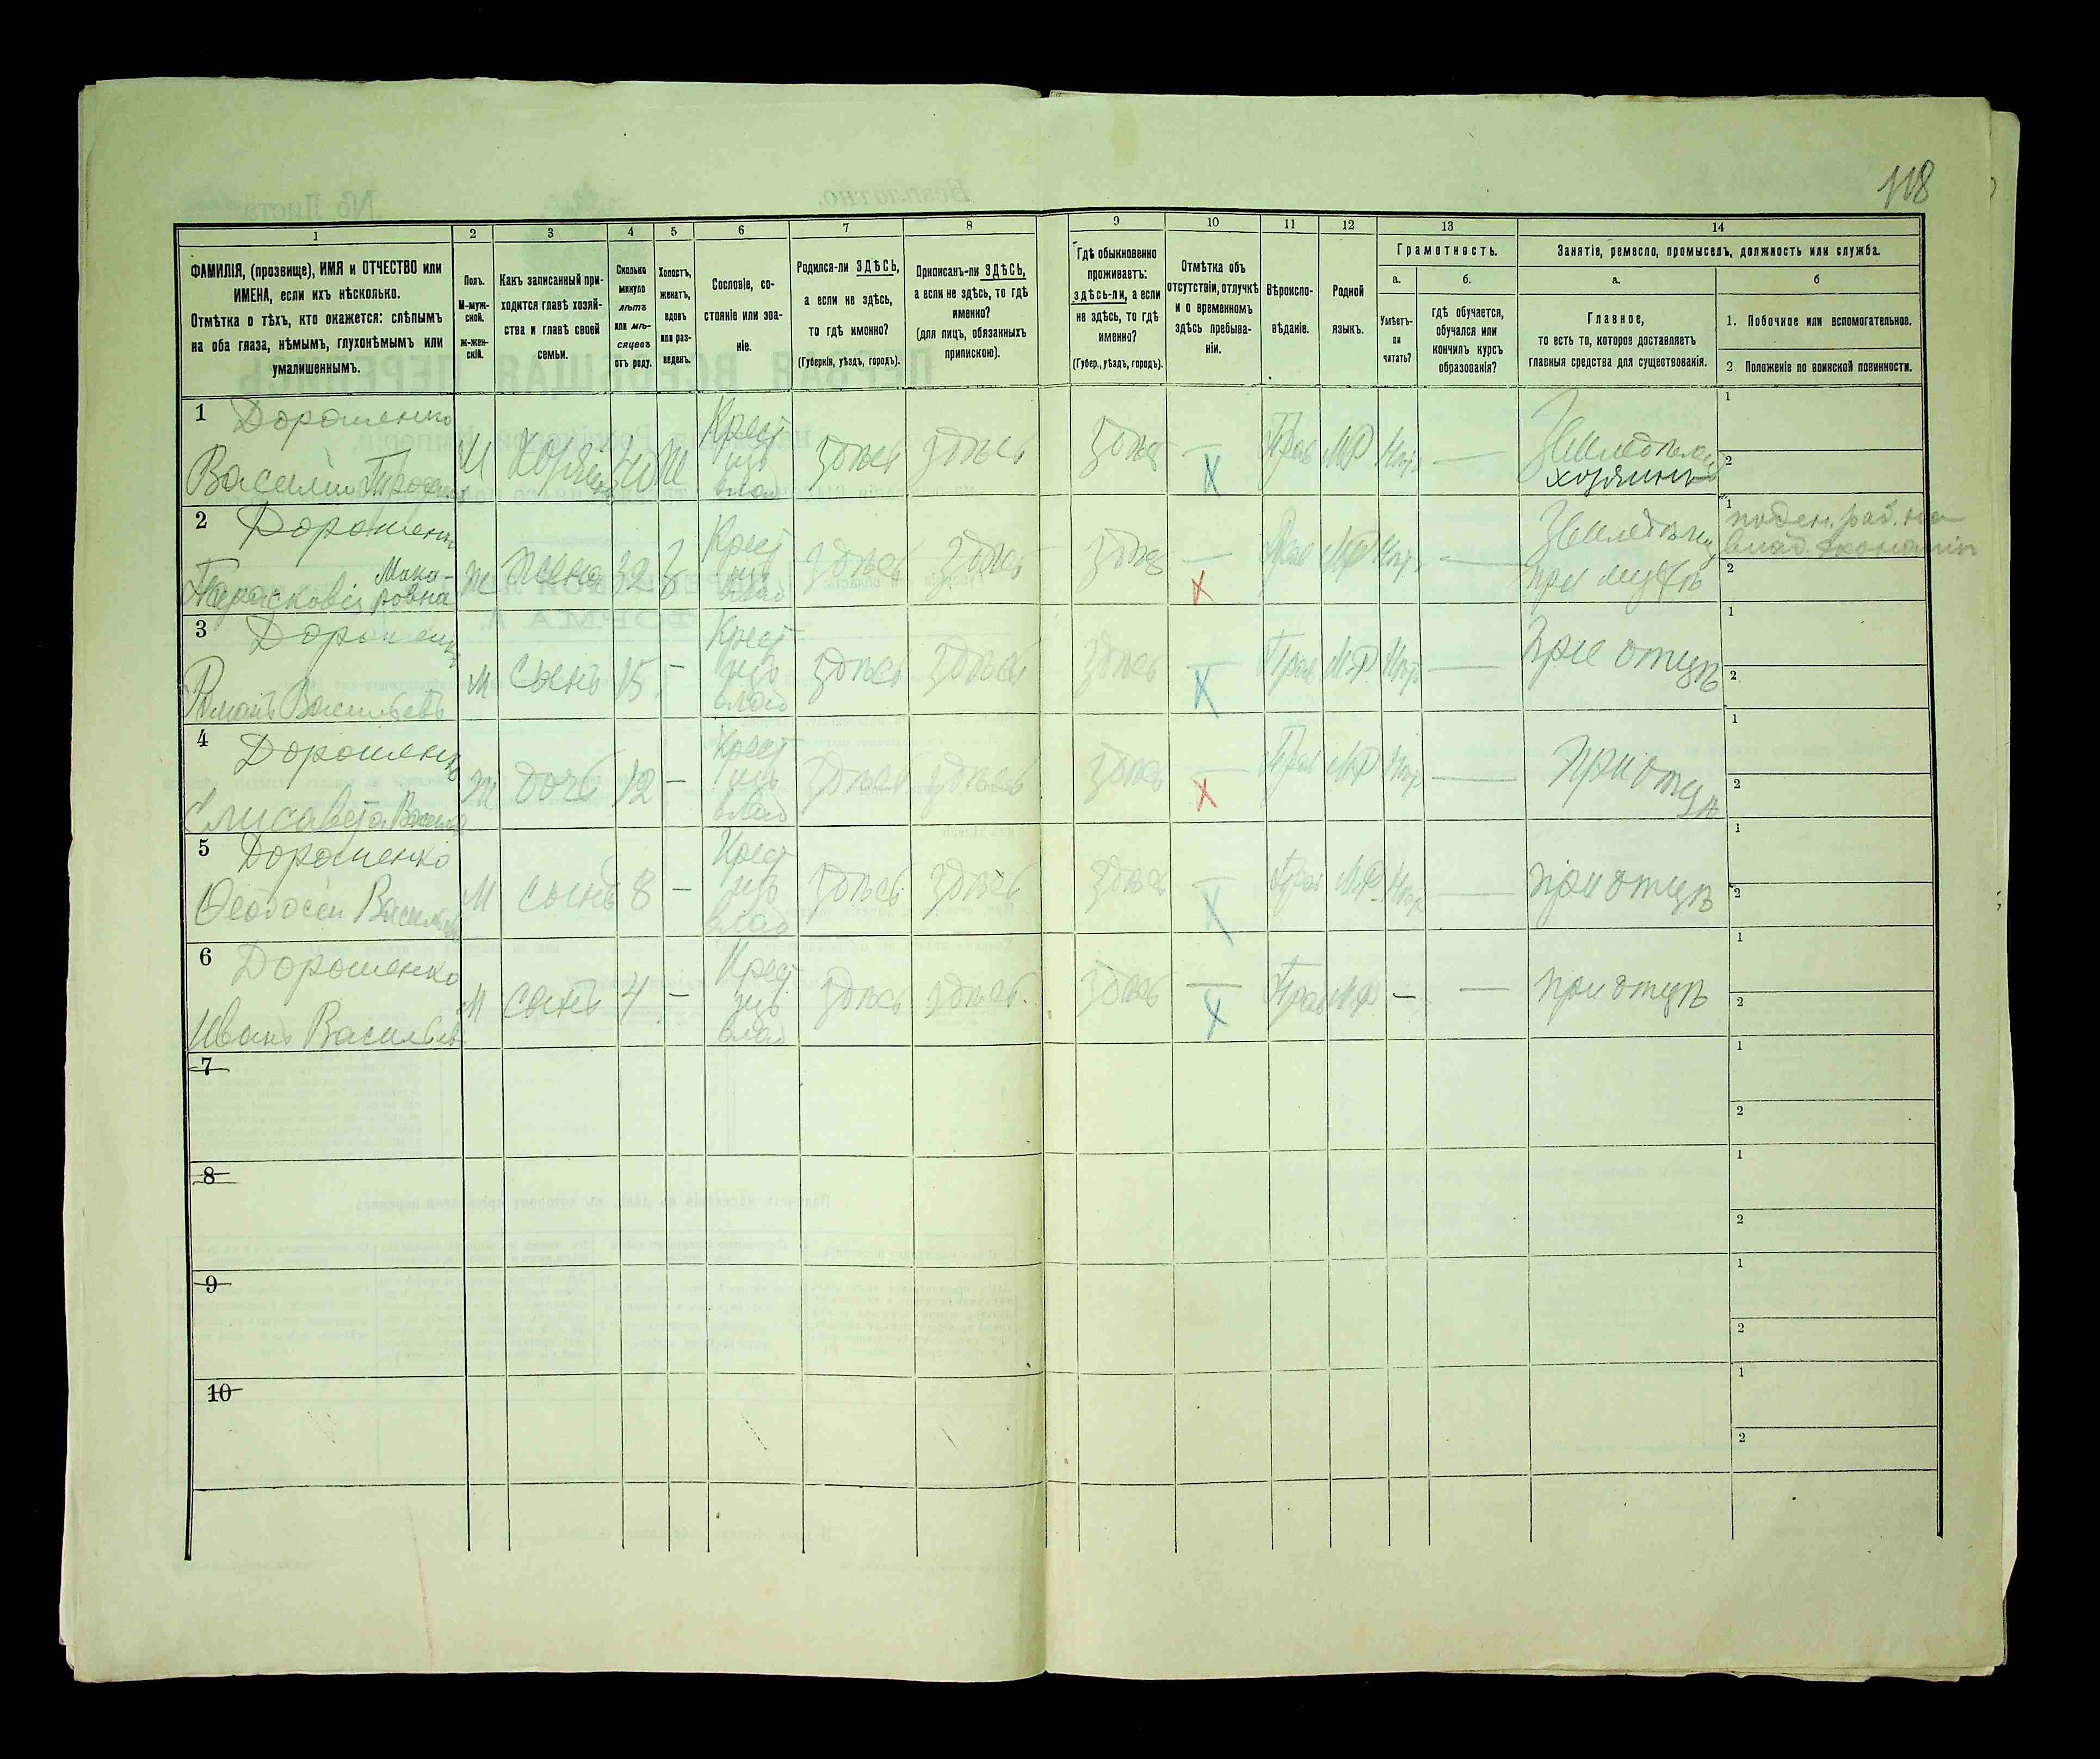 118
1 2 3 4 5 6 7 8 9 10 11 12 13 14
ФАМИЛІЯ, (прозвище), ИМЯ и ОТЧЕСТВО или
ИМЕНА, если ихъ нѣсколько.
Отмѣтка о тѣхъ, кто окажется: слѣпымъ
на оба глаза, нѣмымъ, глухонѣмымъ или
умалишеннымъ.
Полъ.
М-муж-
ской.
ж-жен-
скій.
Какъ записанный при-
ходится главѣ хозяй-
ства и главѣ своей
семьи.
Сколько
минуло
лѣтъ
или мѣ-
сяцевъ
отъ роду.
Холостъ,
женатъ,
вдовъ
или раз-
веденъ.
Сословіе, со-
стояніе или зва-
ніе.
Родился-ли ЗДѢСЬ,
а если не здѣсь,
то гдѣ именно?
(Губернія, уѣздъ, городъ).
Приписанъ-ли ЗДѢСЬ,
а если не здѣсь, то гдѣ
именно?
(для лицъ, обязанныхъ
припискою).
Гдѣ обыкновенно
проживаетъ:
здѣсь-ли, а если
не здѣсь, то гдѣ
именно?
(Губер., уѣздъ, городъ).
Отмѣтка объ
отсутствіи, отлучкѣ
и о временномъ
здѣсь пребыва-
ніи.
Вѣроиспо-
вѣданіе.
Родной
языкъ.
Грамотность.
а.
Умѣетъ-
ли
читать?
б.
гдѣ обучается,
обучался или
кончилъ курсъ
образованія?
Занятіе, ремесло, промыселъ, должность или служба.
а.
Главное,
то есть то, которое доставляетъ
главныя средства для существованія.
б
1. Побочное или вспомогательное.
2. Положеніе по воинской повинности.
1 Дорошенко
Василій
М 40 Крест изъ влад здѣсь здѣсь здѣсь — Прав МР — хозяинъ
1
2
2 Дорошенко
Парасковія Мака-
ровна
Ж жена 32 З Крест изъ влад здѣсь здѣсь здѣсь — Прав МР — при мужѣ
1 поден. раб. на
влад. экономіи
2
3 Дорошенко
Романъ Васильевъ
М сынъ 15 - Крест изъ влад здѣсь здѣсь здѣсь — Прав М.Р — при отцѣ
1
2
4 Дорошенко
Елисавета
Ж дочь 12 - Крест изъ влад здѣсь здѣсь здѣсь — Прав МР — при отцѣ
1
2
5 Дорошенко
Ѳеодосій Васильевъ
М сынъ 8 - Крест изъ влад здѣсь здѣсь здѣсь — Прав М.Р — при отцѣ
1
2
6 Дорошенко
Иванъ Васильевъ
М сынъ 4 - Крест изъ влад здѣсь здѣсь здѣсь — Прав М.Р — — при отцѣ
1
2
7
1
2
8
1
2
9
1
2
10
1
2